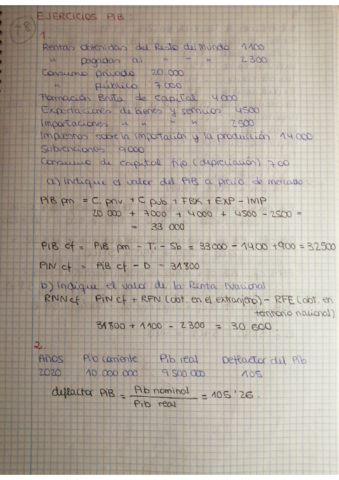 EJERCICIOS PIB
1.
Rentas obtenidas del Resto del Mundo 1100
" pagadas al " " " 2300
Consumo privado 20.000
" público 7000
Formación Bruta de capital 4000
Exportaciones de bienes y servicios 4500
Importaciones " " " 2500
Impuestos sobre la importación y la producción 14000
Subvenciones 9000
Consumo de capital fijo (depreciación) 700
a) Indique el valor del PIB a precio de mercado
PIB pm = C. priv + C pub + FBK + EXP - IMP
20 000 + 7000 + 4000 + 4500 - 2500 =
= 33 000
PIB cf = PIB pm - Ti - Sb = 33000 - 1400 + 900 = 32500
PIN cf = PIB cf - D = 31800
b) Indique el valor de la Renta Nacional
RNN cf = PIN cf + RFN (obt. en el extranjero) - RFE (obt. en
territorio nacional)
31800 + 1100 - 2300 = 30.600.
2.
Años Pib corriente Pib real Deflactor del Pib
2020 10 000 000 9 500 000 105
deflactor PIB = Pib nominal / Pib real = 105'26.